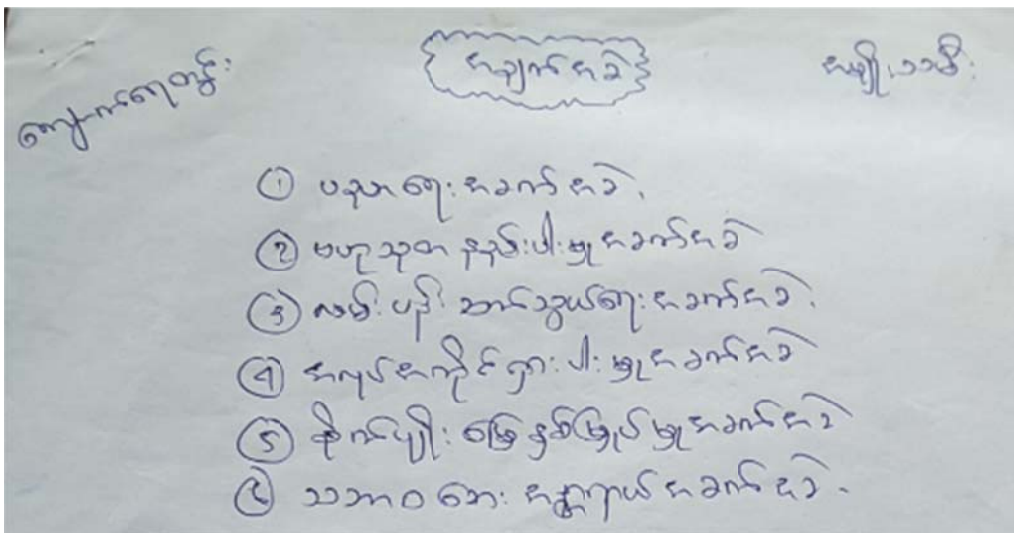 ကျောက်ရေတွင်း
အချက်အခဲ
အမျိုးသမီး
① ပညာရေးအခက်အခဲ.
② ဗဟုသုတ နည်းပါးမှုအခက်အခဲ
③ လမ်းပန်း ဆက်သွယ်ရေးအခက်အခဲ.
④ အလုပ်အကိုင်ရှားပါးမှုအခက်အခဲ
⑤ စိုက်ပျိုးမြေနစ်မြုပ်မှုအခက်အခဲ
⑥ သဘာဝဘေးအန္တရာယ်အခက်အခဲ.